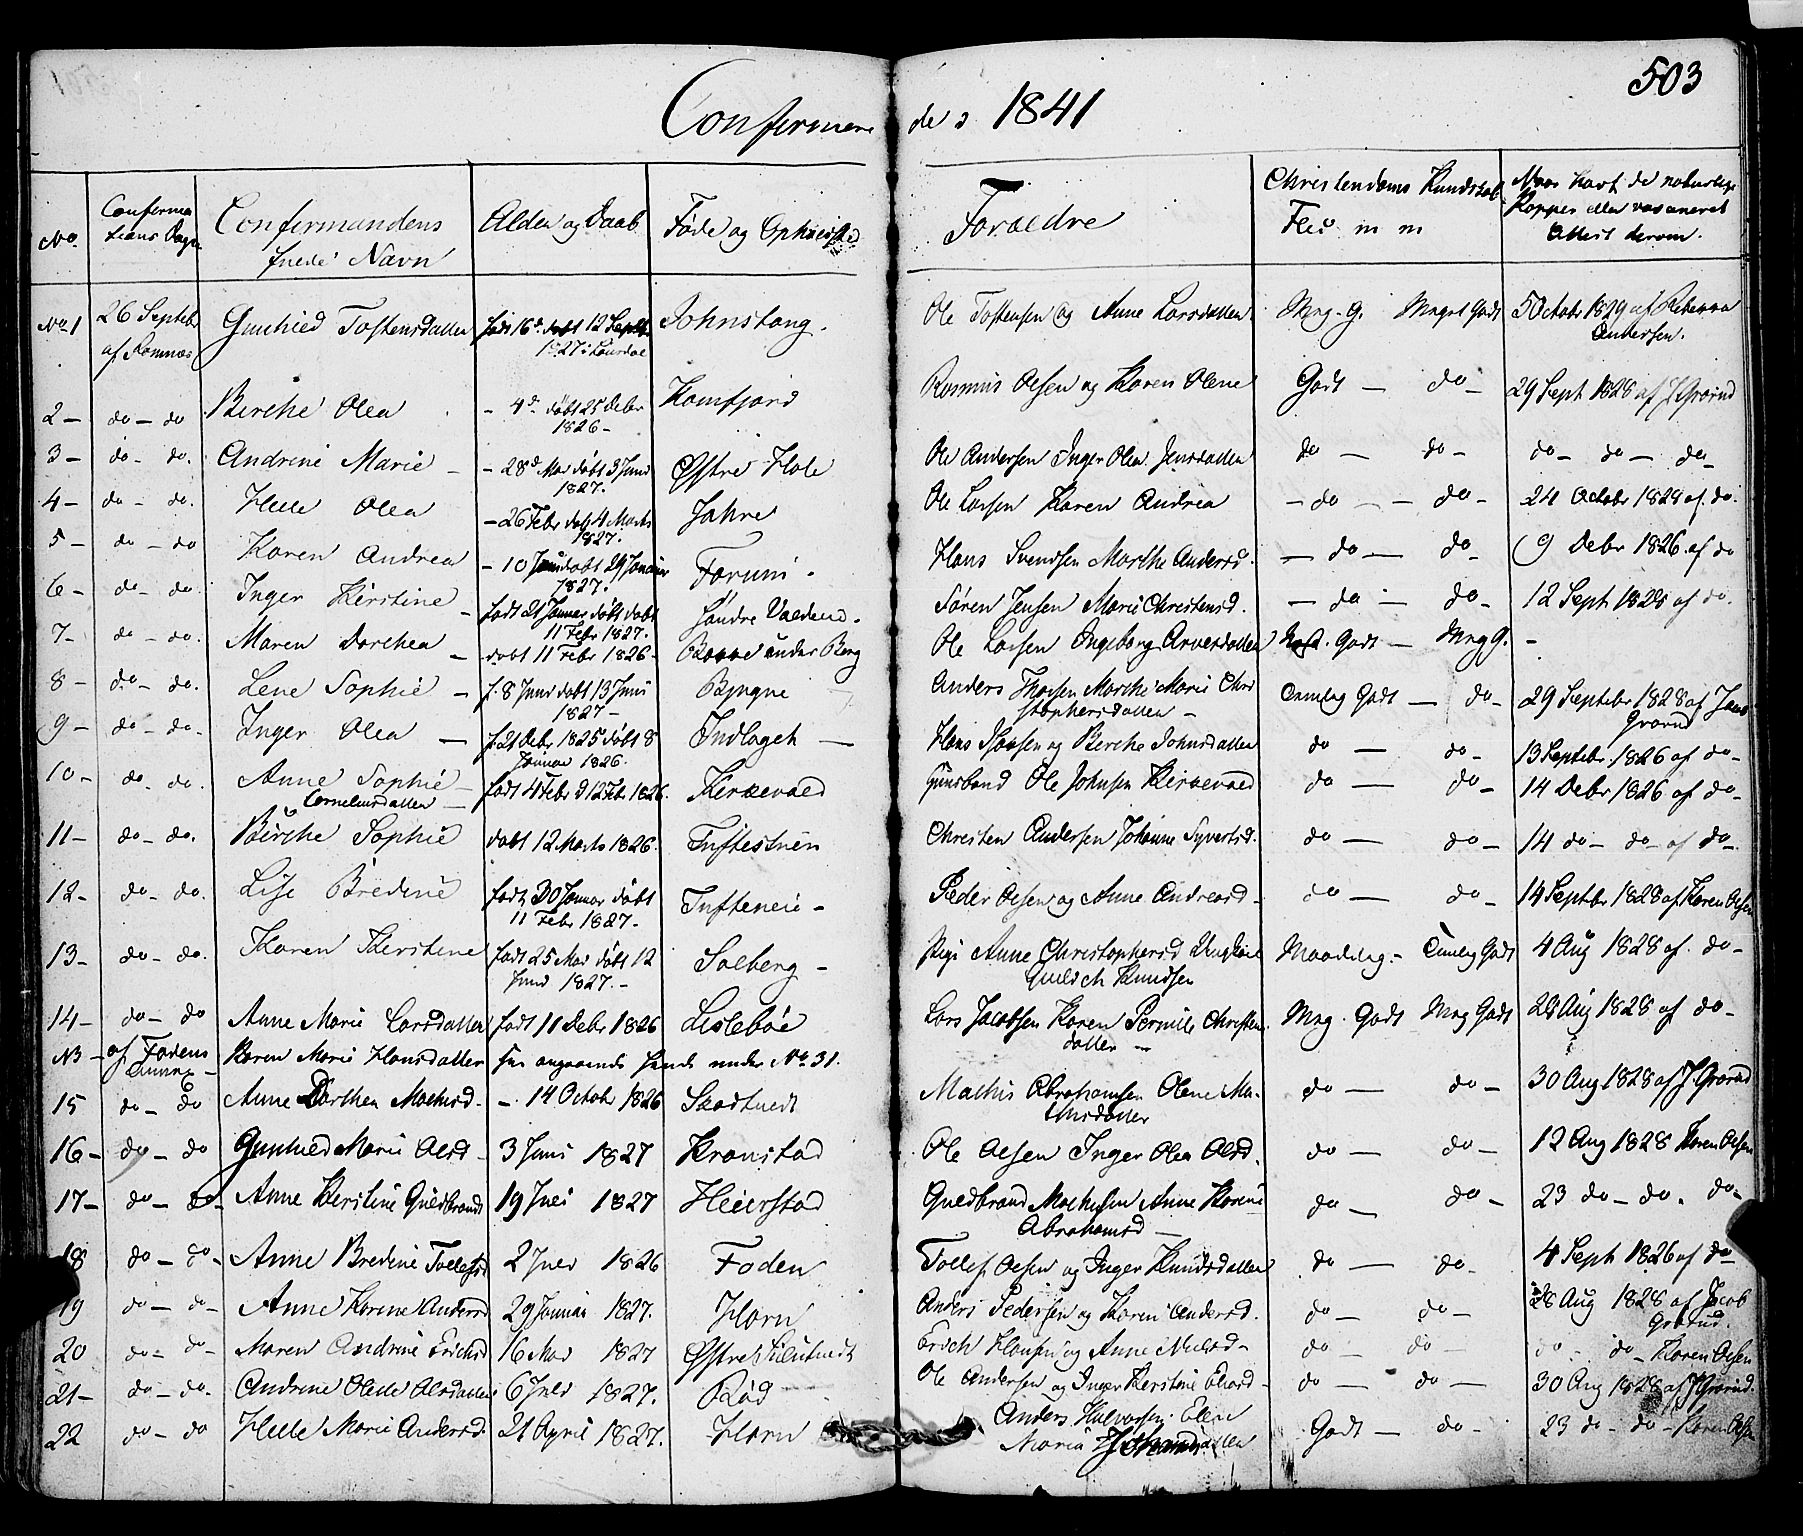 503
Confirmerede 1841
No. Confirmations Dagen Confirmandens fulde Navn Alder og Daab Føde og Foræedre Christendoms Kundskab Flid
Havt de naturlige Kopper eller vaccineret Attest derom.
No 1 26 Septebr Gunhild Tostensdatter født 16de døbt 12 Septbr 1827 Johnstang. Ole Tostensen og Anne Larsdatter Mrg. G. Meget Godt 5 Octobr 1829 af Andersen.
af Ramnæs
2 – do – do Berthe Olea – 4de døbt 25 Debr 1826 – Ramfjord Rasmus Olsen og Karen Olene Godt – do – 29 Sept 1828 af J Grorud
3 – do – do. Andrine Marie – – 28de Mai døbt 3 Juni 1827. Østre Hole Ole Andersen Inger Olea Jensdatter do – do – do – do – do –
4 – do – do. Helle Olea – 26 Febr døbt 4 Marts 1827. Jahre Ole Larsen Karen Andrea – do – – do – 24 Octobr 1828 af do.
5 – do – do Karen Andrea – 10 døbt 29 Januar 1827. Hans Svendsen Marthe Andersd. – do – do – 9 Debr 1826 af do
6 – do – do Inger Kirstine – født 21 Januar døbt 11 Febr 1827. Søndre Valend. Søren Jensen Marie Christensd. – do – do – 12 Sept 1828 af do.
7 – do – do. Maren Dorthea – døbt 11 Febr 1826 – under Berg Ole Larsen Ingeborg Godt – Mrg G. –
8 – do – do. Lene Sophie – f. 8 Juni døbt 13 Juni 1827 – Bjugne Anders Marthe Marie Christophersdatter – Temelig Godt – do – 29 Septebr 1828 af Jacob Grorud
9 – do – do – Inger Olea – f. 21 Debr 1825 døbt 8 Januar 1826. Indlaget – Hans og Berthe Johnsdatter do – do – 13 Septebr 1826 af do –
10 – do – do. Anne Sophie Corneliusdatter – født 4 Febr d 12 Febr 1826. Kirkevold Ole Johnsen Kirkevold do – do – 14 Debr 1826 af do –
11 – do – do. Berthe Sophie døbt 12 Marts 1826. Christen Andersen Johanne Syvertsd. do – do – 14 do – do – af do –
12 – do – do. Lise Bredine født 30 Januar døbt 11 Febr 1827. Tufteneie – Peder Olsen og Anne Andreasd – do – do – 14 Septbr 1828 af Karen Olsen
13 – do – do. Karen Kirstine født 25 Mai døbt 12 Juni 1827. – Solberg – Pige Anne Christophersd Ungkarl Knudsen Maadelig – Temelig Godt 4 Aug 1828 af do –
14 – do – do Anne Marie Larsdatter født 11 Debr 1826 Lislebøe Lars Jacobsen Karen Pernille Christensdatter – Mrg. Godt Mrg Godt 28 Aug 1828 af do –
NB – af Fodens Annex – Karen Marie Hansdatter her angaaende findes under No 31.
15 do – do Anne Dorthea Mathisd – –. 14 Octob 1826 Mathis Abrahamsen Olene Mathisdatter do – do – 30 Aug 1828 af J Grorud
16 – do – do Gunhild Marie Olsd – 3 Juni 1827 Kronstad Ole Olsen Inger Olea Olsd. do – do – 12 Aug 1828 Karen Olsen
17 – do – do – Anne Kirstine Guldbrands 19 Juli 1827 Heierstad Guldbrand Mathisen Anne Karine Abrahamsd – do – do – 23 do – do. do –
18 do – do – Anne Bredine Tollefsd 2 Juli 1826 Foden Tollef Olsen og Inger Knudsdatter do – do – 4 Sept 1826 af do
19 do – do – Anne Karine Andersd 29 Januar 1827. Horn Anders Pedersen og Karen Andersd. do – do – 28 Aug 1828 af Jacob Grorud.
20 do – do – Maren Andrine Erichsd 16 Mai 1827 Østre Erich Hansen og Anne do – do – do – do – Karen Olsen
21 – do – do – Andrine Olea Olsdatter 6 Juli 1827. Rød Ole Andersen og Inger Kirstine do – do – 30 Aug 1828 af J Grorud.
22 do – do Helle Marie Andersd. 21 April 1827. Horn Anders Halvorsen Ellen Maria Godt – do – 23 do – do – Karen Olsen